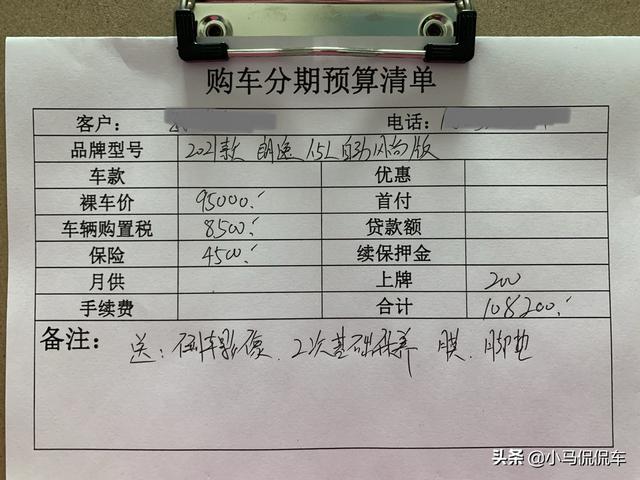 购车分期预算清单
客户： 电话：
品牌型号 2021款 朗逸 1.5L自动风尚版
车款 优惠
裸车价 95000.- 首付
车辆购置税 8500.- 贷款额
保险 4500.- 续保押金
月供 上牌 200
手续费 合计 108200.-
备注： 送：倒车影像、2次基础保养 膜、脚垫
头条 @小马侃侃车